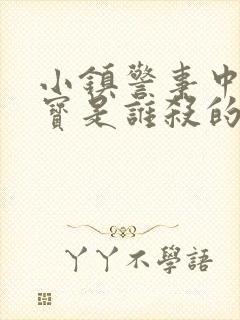 小鎮警事中
寶是誰殺的
丫丫不學語